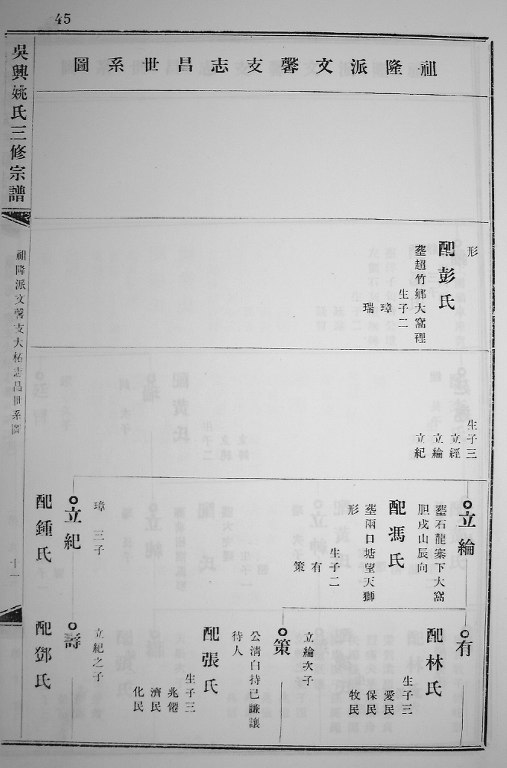 45
吳興姚氏三修宗譜
祖隆派文馨支大柘志昌世系圖
十一
祖隆派文馨支志昌世系圖
形
配彭氏
塟超竹鄉大窩裡
生子二
璋
瑞
生子三
立經
立綸
立紀
立綸
塟石龍寨下大窩
胆戌山辰向
配馮氏
塟兩口塘望天獅
形
生子二
有
策
璋三子
立紀
配鍾氏
有
配林氏
生子三
愛民
保民
牧民
立綸次子
策
公清白持己謙讓
待人
配張氏
生子三
兆僊
濟民
化民
立紀之子
壽
配鄧氏